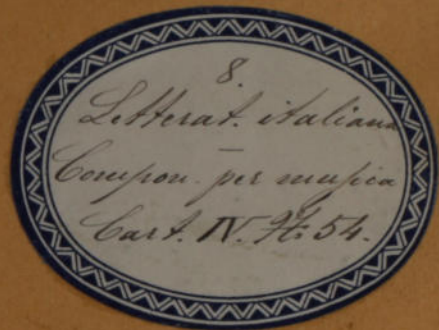 8.
Letterat. italiana
—
Compon. per musica
Cart. IV. N: 54.